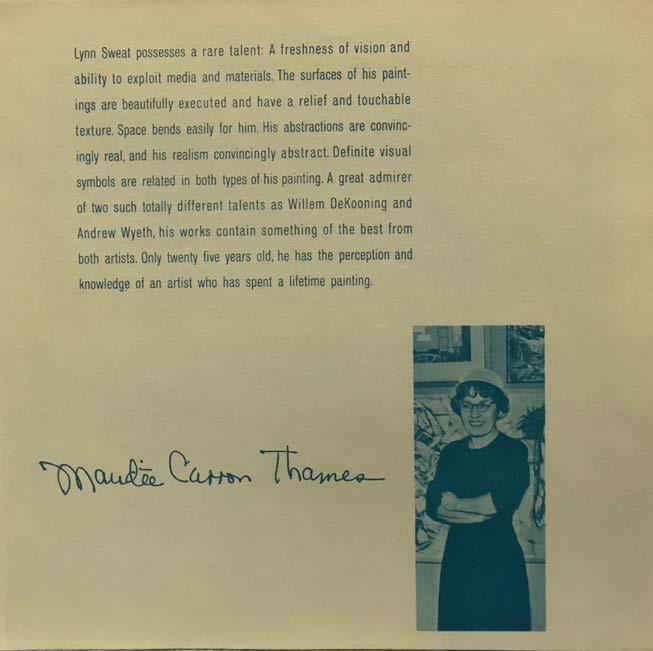 Lynn Sweat possesses a rare talent: A freshness of vision and
ability to exploit media and materials. The surfaces of his paint-
ings are beautifully executed and have a relief and touchable
texture. Space bends easily for him. His abstractions are convinc-
ingly real, and his realism convincingly abstract. Definite visual
symbols are related in both types of his painting. A great admirer
of two such totally different talents as Willem DeKooning and
Andrew Wyeth, his works contain something of the best from
both artists. Only twenty five years old, he has the perception and
knowledge of an artist who has spent a lifetime painting.
Maudée Carron Thames